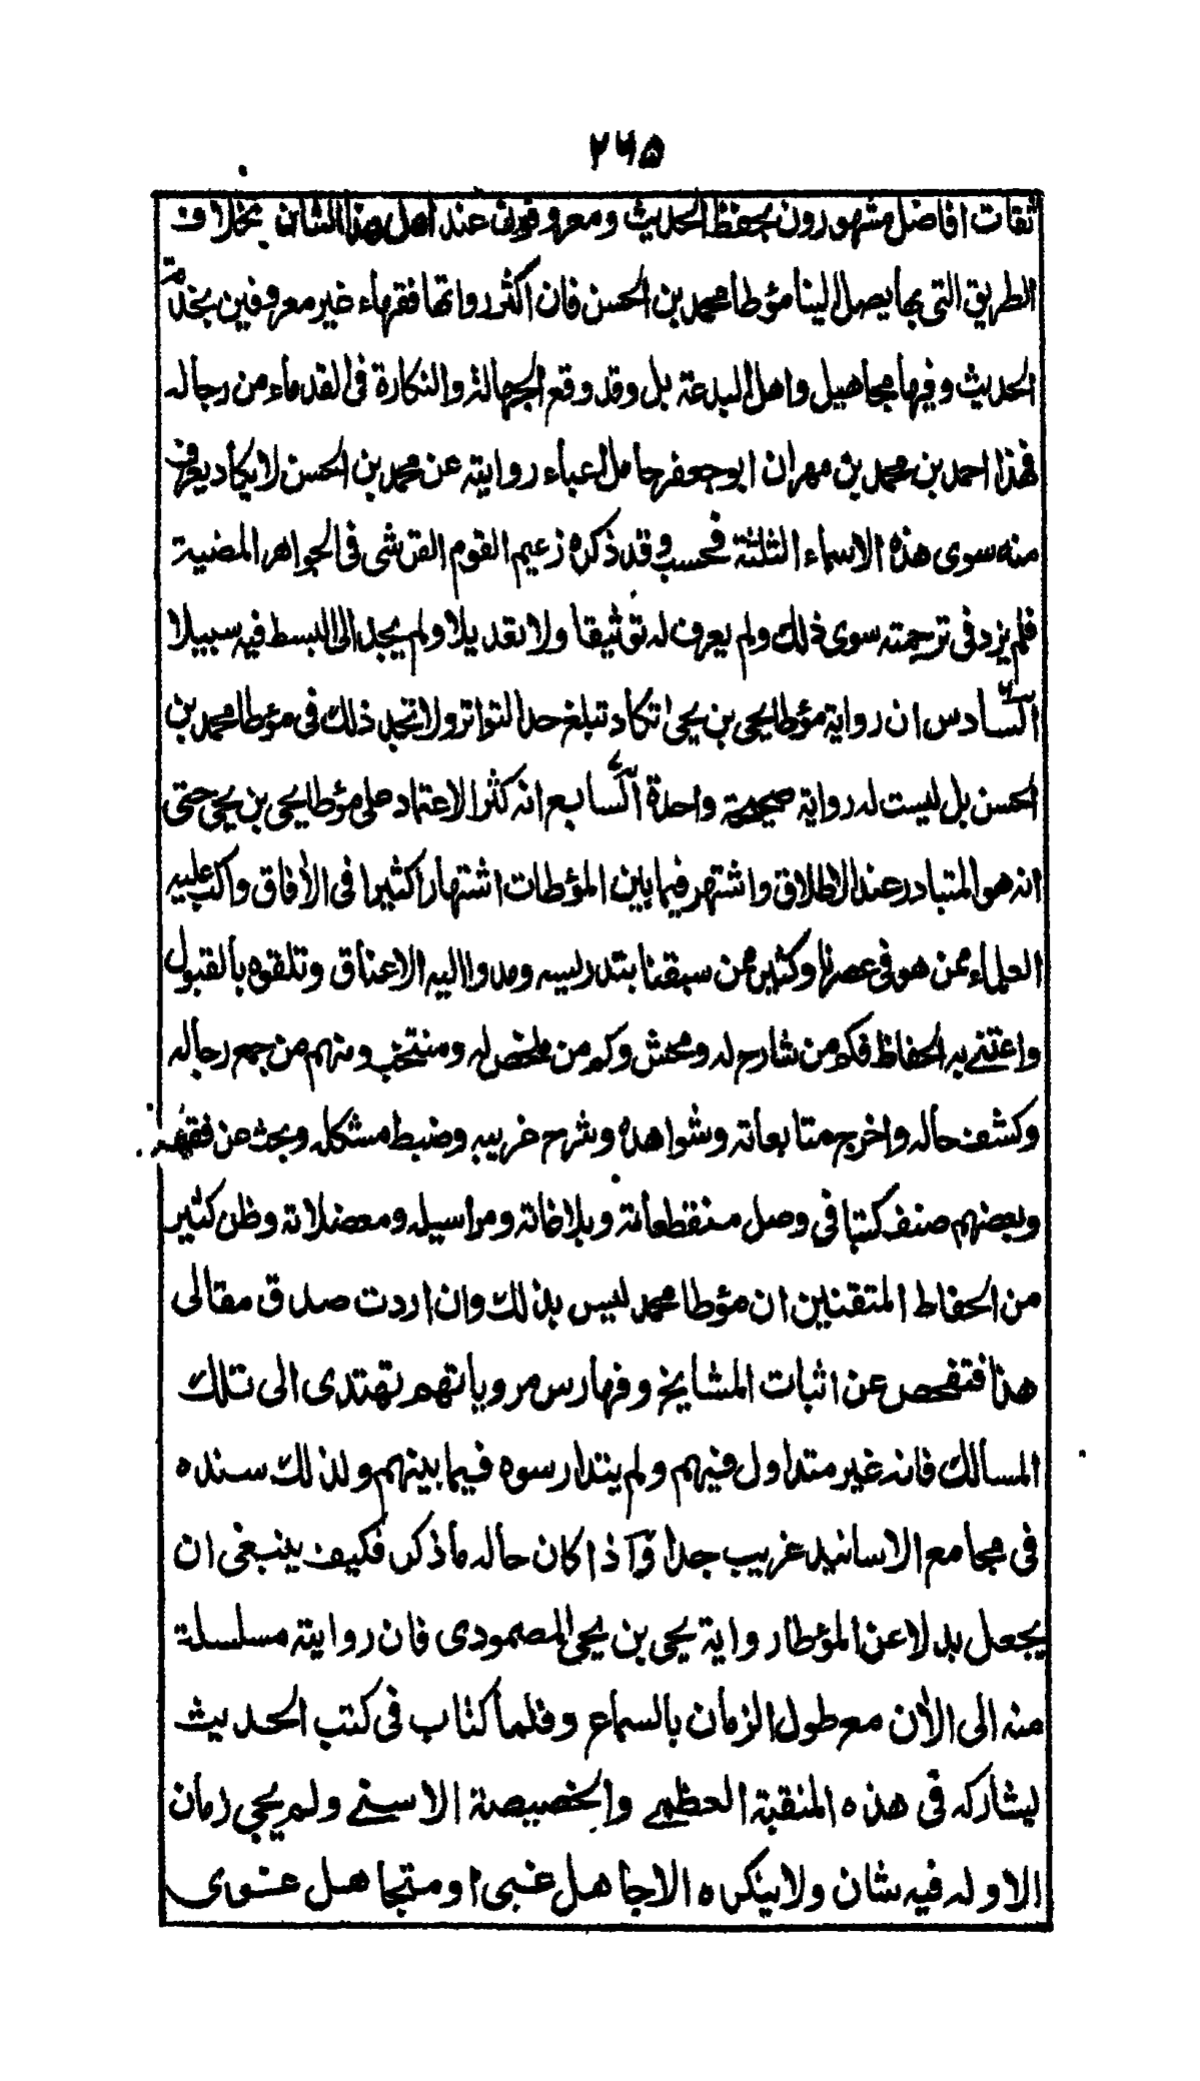 ۲۶۵
ثقات افاضل مشهورون بحفظ الحديث ومعروفون عند اهل هذا الشان بخلاف
الطريق التي بها يصل الينا مؤطا محمد بن الحسن فان اكثر رواتها فقهاء غير معروفين بخدمة
الحديث وفيها مجاهيل واهل البدعة بل وقد وقع الجهالة والنكارة في القدماء من رجاله
فهذا احمد بن محمد بن مهران ابو جعفر حامل اعباء روايته عن محمد بن الحسن لا يكاد يعرف
منه سوى هذه الاسماء الثلثة فحسب وقد ذكره زعيم القوم القرشى في الجواهر المضية
فلم يزد في ترجمته سوى ذلك ولم يعرف له توثيقا ولا تعديلا ولم يجد الى البسط فيه سبيلا
السادس ان رواية مؤطا يحيى بن يحيى تكاد تبلغ حد التواتر ولا تجد ذلك في مؤطا محمد بن
الحسن بل ليست له رواية صحيحة واحدة السابع انه كثر الاعتماد على مؤطا يحيى بن يحيى حتى
انه هو المتبادر عند الاطلاق واشتهر فيما بين المؤطات اشتهارا كثيرا في الآفاق واكب عليه
العلماء ممن هو في عصرنا وكثير ممن سبقنا بتدريسه ومدوا اليه الاعناق وتلقوه بالقبول
واعتنى به الحفاظ فكم من شارح له ومحش وكم من ملخص له ومنتخب ومنهم من جمع رجاله
وكشف حاله واخرج متابعاته وشواهده وشرح غريبه وضبط مشكله وبحث عن فقهه
وبعضهم صنف كتبا في وصل منقطعاته وبلاغاته ومراسيله ومعضلاته وظن كثير
من الحفاظ المتقنين ان مؤطا محمد ليس بذلك وان اردت صدق مقالى
هذا فتفحص عن اثبات المشايخ وفهارس مروياتهم تهتدى الى تلك
المسالك فانه غير متداول فيهم ولم يتدارسوه فيما بينهم ولذلك سنده
في مجامع الاسانيد غريب جدا وآذا كان حاله ما ذكر فكيف ينبغى ان
يجعل بدلا عن المؤطا رواية يحيى بن يحيى المصمودى فان روايته مسلسلة
منه الى الآن مع طول الزمان بالسماع وقلما كتاب في كتب الحديث
ليشاركه في هذه المنقبة العظمى والخصيصة الاسنى ولم يجئ زمان
الا وله فيه شان ولا ينكره الا جاهل غبى او متجاهل غوى